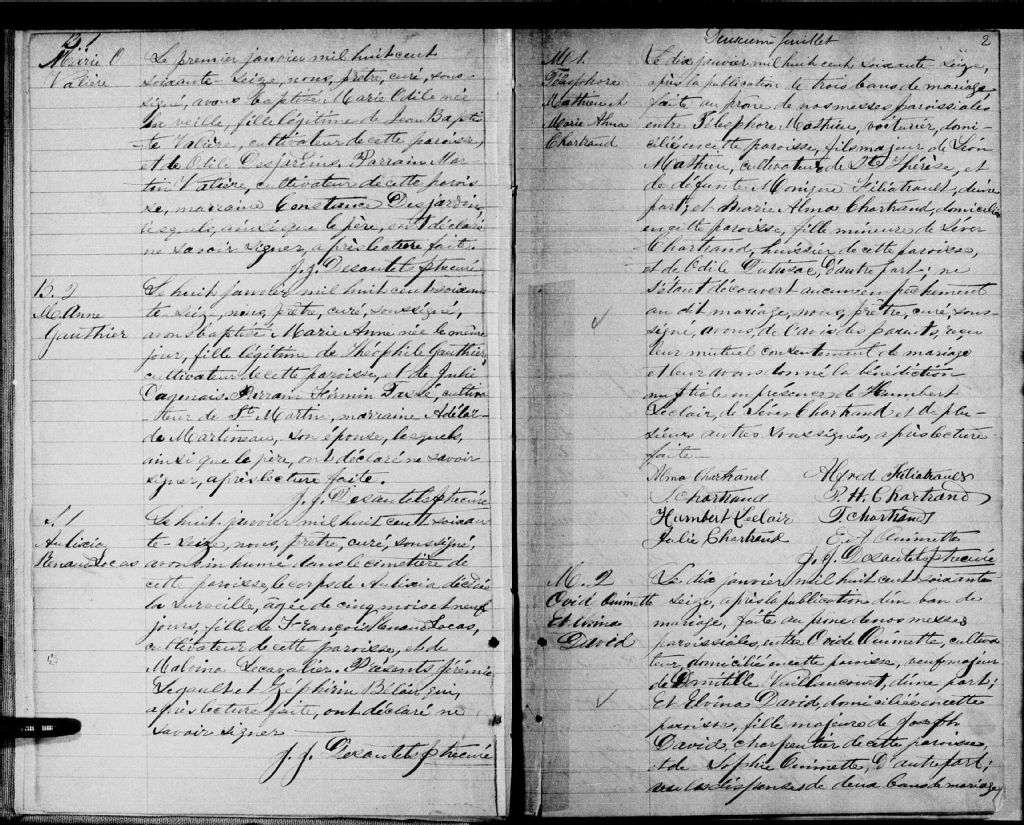 B. 1
Marie O.
Valière
Le premier janvier mil huit cent
soixante-seize, nous, prêtre, curé, sous-
signé, avons baptisé Marie Odile née
la veille, fille légitime de Jean Baptis-
te Valière, cultivateur de cette paroisse,
et de Odile Desjardins. Parrain Mar-
tin Valière, cultivateur de cette parois-
se, marraine Constance Desjardins,
lesquels, ainsi que le père, ont déclaré
ne savoir signer, après lecture faite.
J. J. Desautels ptre curé
B. 2
M. Anne
Gauthier
Le huit janvier mil huit cent soixan-
te-seize, nous, prêtre, curé, soussigné,
avons baptisé Marie Anne née le même
jour, fille légitime de Théophile Gauthier,
cultivateur de cette paroisse, et de Julie
Dagenais. Parrain Firmin Dubé, cultiva-
teur de St Martin, marraine Adélaï-
de Martineau, son épouse, lesquels,
ainsi que le père, ont déclaré ne savoir
signer, après lecture faite.
J. J. Desautels ptre curé
S. 1
Renaud Locas
Le huit janvier mil huit cent soixan-
te-seize, nous, prêtre, curé, soussigné,
avons inhumé dans le cimetière de
cette paroisse, le corps de décédée
la surveille, âgée de cinq mois et neuf
jours, fille de François Renaud Locas,
cultivateur de cette paroisse, et de
Malvina Lecavalier. Présents Jérémie
Legault et Zéphirin Bélair qui,
après lecture faite, ont déclaré ne
savoir signer
J. J. Desautels ptre curé
Deuxième feuillet
2
M. 1.
Télesphore
Mathieu et
Marie Alma
Chartrand
Le dix janvier mil huit cent soixante seize,
après la publication de trois bans de mariage
faite au prône de nos messes paroissiales
entre Télesphore Mathieu, voiturier, domi-
cilié en cette paroisse, fils majeur de Léon
Mathieu, cultivateur de Ste Thérèse, et
de défunte Monique Filiatrault, d'une
part; et Marie Alma Chartrand, domiciliée
en cette paroisse, fille mineure de Sévère
Chartrand, huissier de cette paroisse,
et de Odile Dutrisac, d'autre part; ne
s'étant découvert aucun empêchement
au dit mariage, nous, prêtre, curé, sous-
signé, avons, de l'avis des parents, reçu
leur mutuel consentement de mariage
et leur avons donné la bénédiction
nuptiale en présence de Humbert
Leclair, de Sévère Chartrand et de plu-
sieurs autres soussignés, après lecture
faite
Alma Chartrand Alfred Filiatrault
S. Chartrand P. H. Chartrand
Humbert Leclair T. Chartrand
Julie Chartrand E. A. Ouimette
J. J. Desautels ptre curé
M. 2
Ovid Ouimette
Et Elvina
David
Le dix janvier mil huit cent soixante
seize, après la publication d'un ban de
mariage, faite au prône de nos messes
paroissiales, entre Ovide Ouimette, cultiva-
teur, domicilié en cette paroisse, veuf majeur
de Domitille Vaillancourt, d'une part;
Et Elvina David, domiciliée en cette
paroisse, fille majeure de Joseph
David, charpentier de cette paroisse,
et de Sophie Ouimette, d'autre part;
vu les dispenses de deux bans de mariage